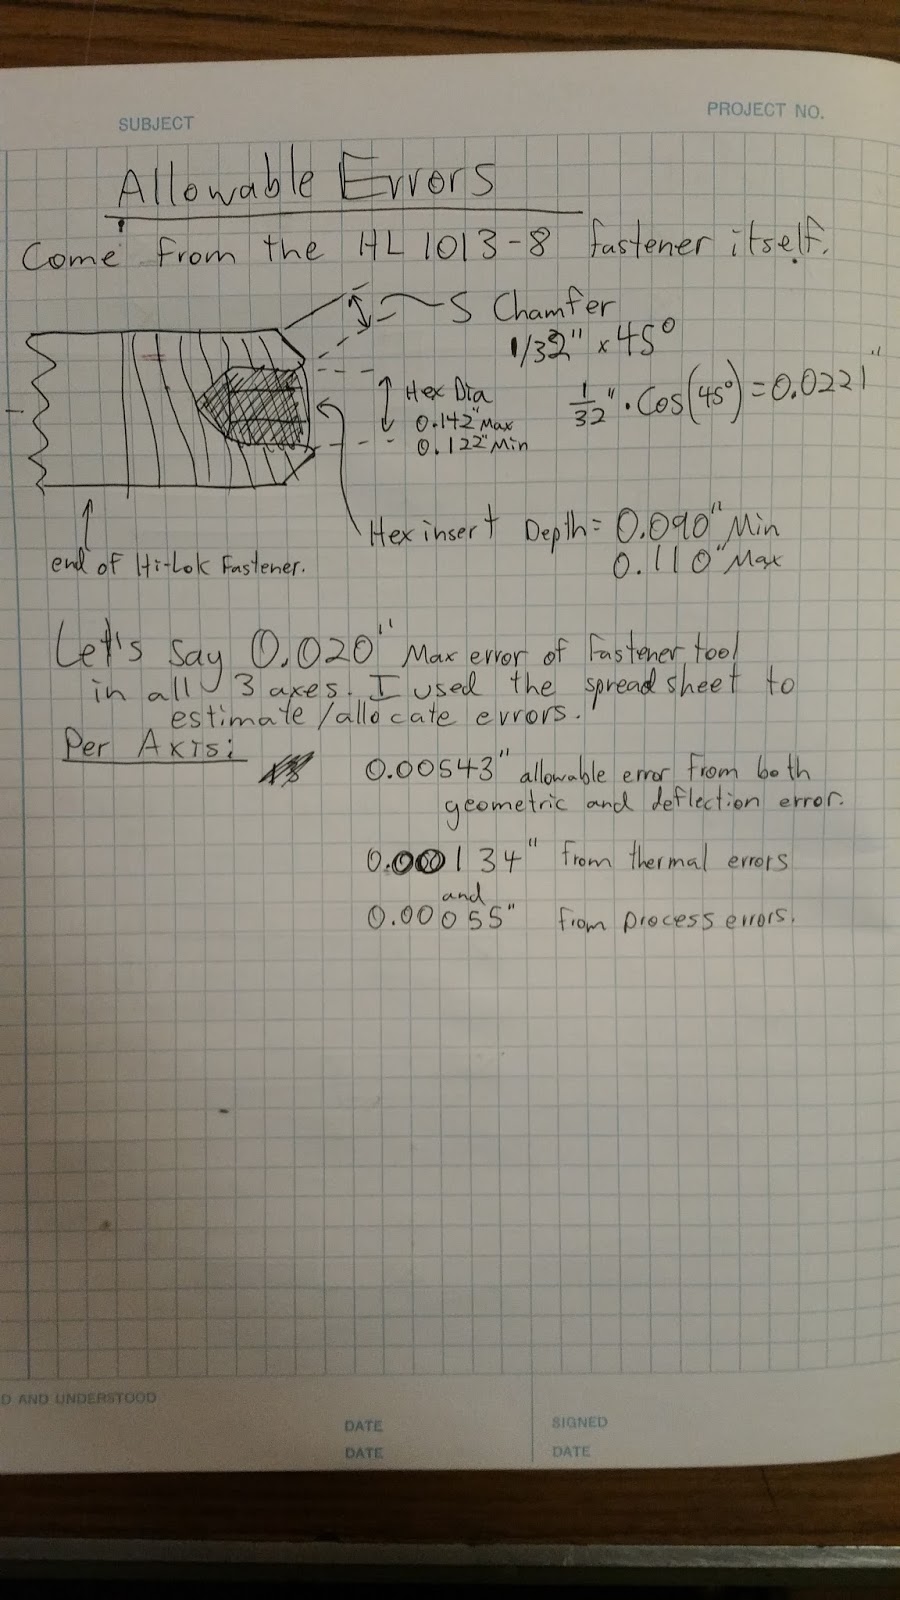 SUBJECT
PROJECT NO.
Allowable Errors
Come from the HL 1013-8 fastener itself.
S Chamfer
1/32" x 45°
1/32" · Cos(45°) = 0.0221"
Hex Dia
0.142" Max
0.122" Min
Hex insert Depth = 0.090" Min
0.110" Max
end of Hi-Lok Fastener.
Let's say 0.020" Max error of fastener tool
in all 3 axes. I used the spreadsheet to
estimate/allocate errors.
Per Axis:
0.00543" allowable error from both
geometric and deflection error.
0.00134" from thermal errors
and
0.00055" from process errors.
D AND UNDERSTOOD
DATE
SIGNED
DATE
DATE